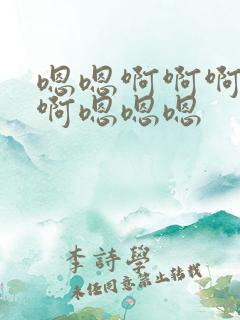 嗯嗯啊啊啊
啊嗯嗯嗯
李詩學
未經同意禁止轉載